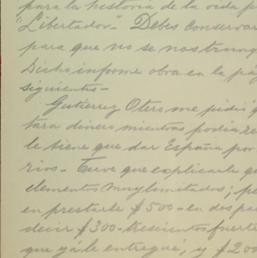 para la historia de la vida p
"Libertador". Debes conservar
para que no se nos trunq
Dicho informe obra en la pá
siguiente.-
Gutiérrez Otero, me pidió q
tara dinero mientras podía re
le tiene que dar España por
rios.- Tuve que explicarle q
elementos muy limitados; pe
en prestarle $500- en dos pa
decir $300- trescientos fuerte
que yá le entregué, y $200